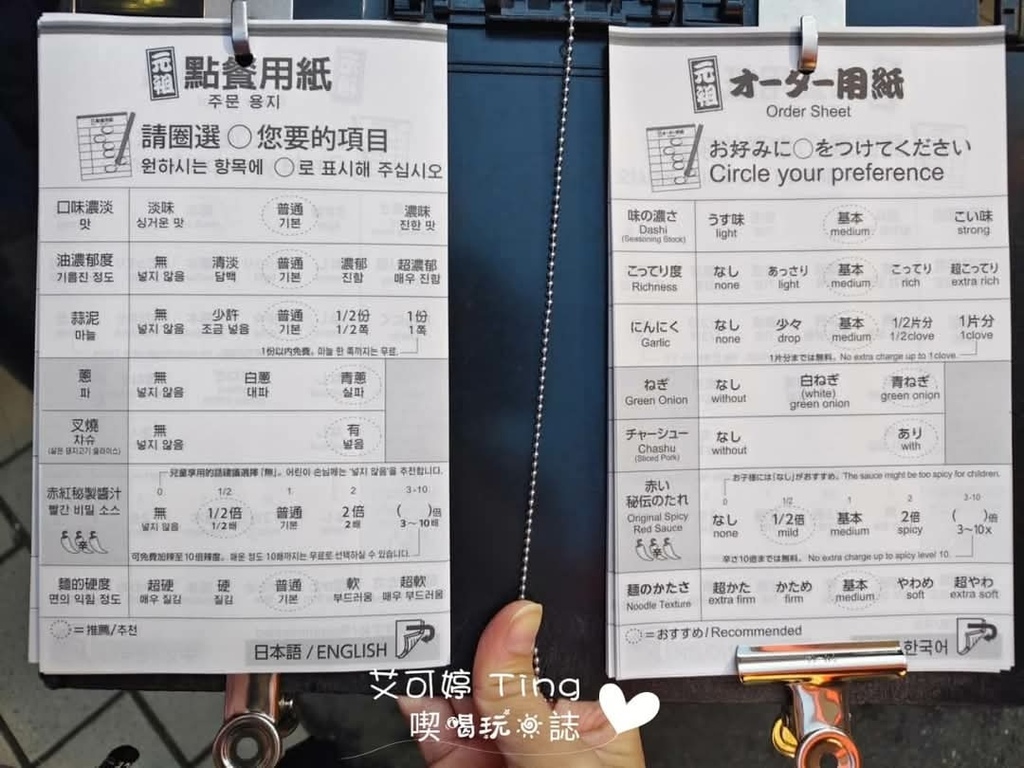 元祖 點餐用紙
주문 용지
請圈選 ○ 您要的項目
원하시는 항목에 ○로 표시해 주십시오
口味濃淡 淡味 普通 濃味
맛 싱거운 맛 기본 진한 맛
油濃郁度 無 清淡 普通 濃郁 超濃郁
기름진 정도 넣지 않음 담백 기본 진함 매우 진함
蒜泥 無 少許 普通 1/2份 1份
마늘 넣지 않음 조금 넣음 기본 1/2쪽 1쪽
1份以內免費。마늘 한 쪽까지는 무료.
蔥 無 白蔥 青蔥
파 넣지 않음 대파 실파
叉燒 無 有
차슈 넣지 않음 넣음
兒童享用的話建議選擇「無」。어린이 손님께는 '넣지 않음'을 추천합니다.
0 1/2 1 2 3-10
赤紅秘製醬汁 無 1/2倍 普通 2倍 ( )倍
빨간 비밀 소스 넣지 않음 1/2배 기본 2배 3~10배
辛
可免費加辣至10倍辣度。매운 정도 10배까지는 무료로 선택하실 수 있습니다.
麵的硬度 超硬 硬 普通 軟 超軟
면의 익힘 정도 매우 질감 질감 기본 부드러움 매우 부드러움
=推薦/추천
日本語 / ENGLISH
元祖 オーダー用紙
Order Sheet
お好みに○をつけてください
Circle your preference
味の濃さ うす味 基本 こい味
Dashi light medium strong
(Seasoning Stock)
こってり度 なし あっさり 基本 こってり 超こってり
Richness none light medium rich extra rich
にんにく なし 少々 基本 1/2片分 1片分
Garlic none drop medium 1/2clove 1clove
1片分までは無料。No extra charge up to 1clove.
ねぎ なし 白ねぎ 青ねぎ
Green Onion without (white) green onion green onion
チャーシュー なし あり
Chashu without with
(Sliced Pork)
お子様には「なし」がおすすめ。The sauce might be too spicy for children.
0 1/2 1 2 3-10
赤い秘伝のたれ なし 1/2倍 基本 2倍 ( )倍
Original Spicy Red Sauce none mild medium spicy 3~10x
辛
辛さ10倍までは無料。No extra charge up to spicy level 10.
麺のかたさ 超かた かため 基本 やわめ 超やわ
Noodle Texture extra firm firm medium soft extra soft
=おすすめ / Recommended
한국어
艾可婷 Ting
喫喝玩 誌